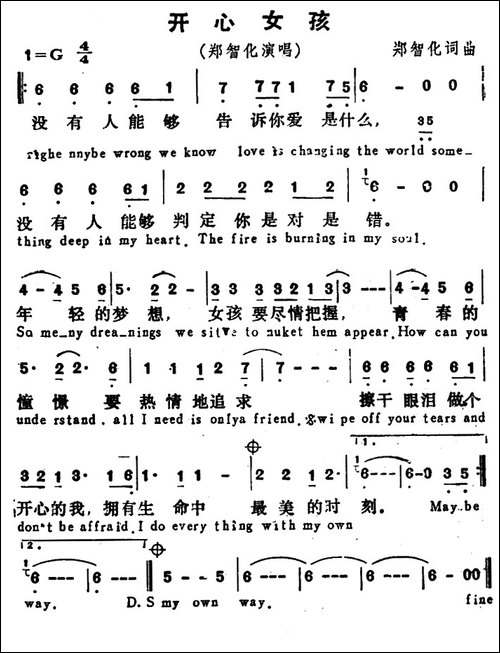 开心女孩
1=G 4/4 (郑智化演唱) 郑智化词曲
6 6 6 6 1 7 771 75 6 - 0 0
没有人能够 告诉你爱是什么， 35
righe nnybe wrong we know love is changing the world some-
6 6 6 61 2 2 2 2 1 2 6 - 0 0
没有人能够判定你是对是错。
thing deep in my heart. The fire is burning in my soul.
4 - 4 5 6 5· 2 2 - 3 3 3 3 2 1 3 3 - - - 4 - 4 5 6
年轻的梦想，女孩要尽情把握，青春的
So me-ny drea-nings we to nuket hem appear. How can you
5· 2 2 - 6 1· 1 1 2 7 7 - - - 6 6 6 6 6 1
憧憬要热情地追求 擦干眼泪做个
unde rstand. all I need is onlya friend. wi pe off your tears and
3 2 1 3 1· 1 6 1 - 1 - 2 2 1 2· 6 - - - 6 - 0 3 5
开心的我，拥有生命中最美的时刻。 May-be
don't be affraid. I do every thing with my own
1.
2.
6 - - - 6 - - - 5 - 5 - 6 - - - 6 - - - 6 - - - 6 - 0 0
way. D.S my own way. fine